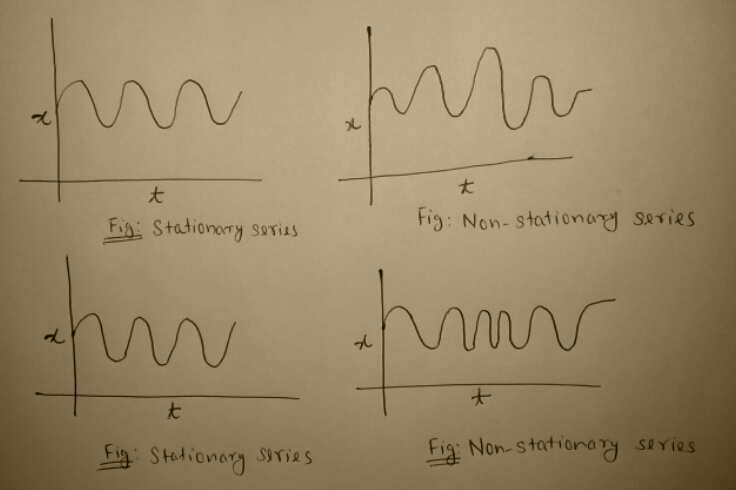 x
x
t
t
Fig: Stationary series
Fig: Non-stationary series
x
x
t
t
Fig: Stationary series
Fig: Non-stationary series